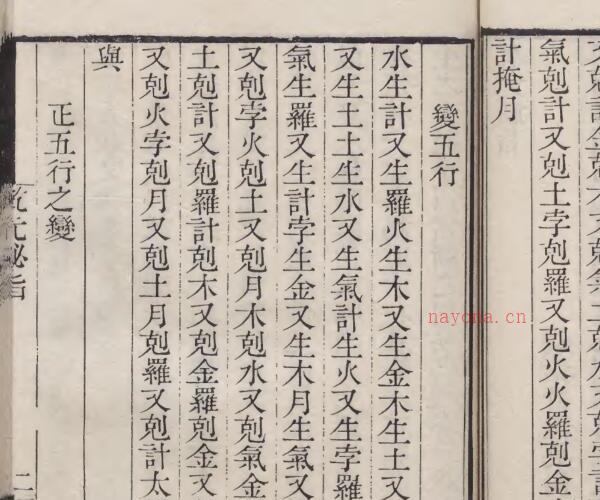 氣剋計又剋土孛剋羅又剋火火羅剋金
計掩月
變五行
水生計又生羅火生木又生金木生土又
又生土土生水又生氣計生火又生孛羅
氣生羅又生計孛生金又生木月生氣又
又剋孛火剋土又剋月木剋水又剋氣金
土剋計又剋羅計剋木又剋金羅剋金又
又剋火孛剋月又剋土月剋羅又剋計太
與
正五行之變
元秘旨
二
nayona.cn